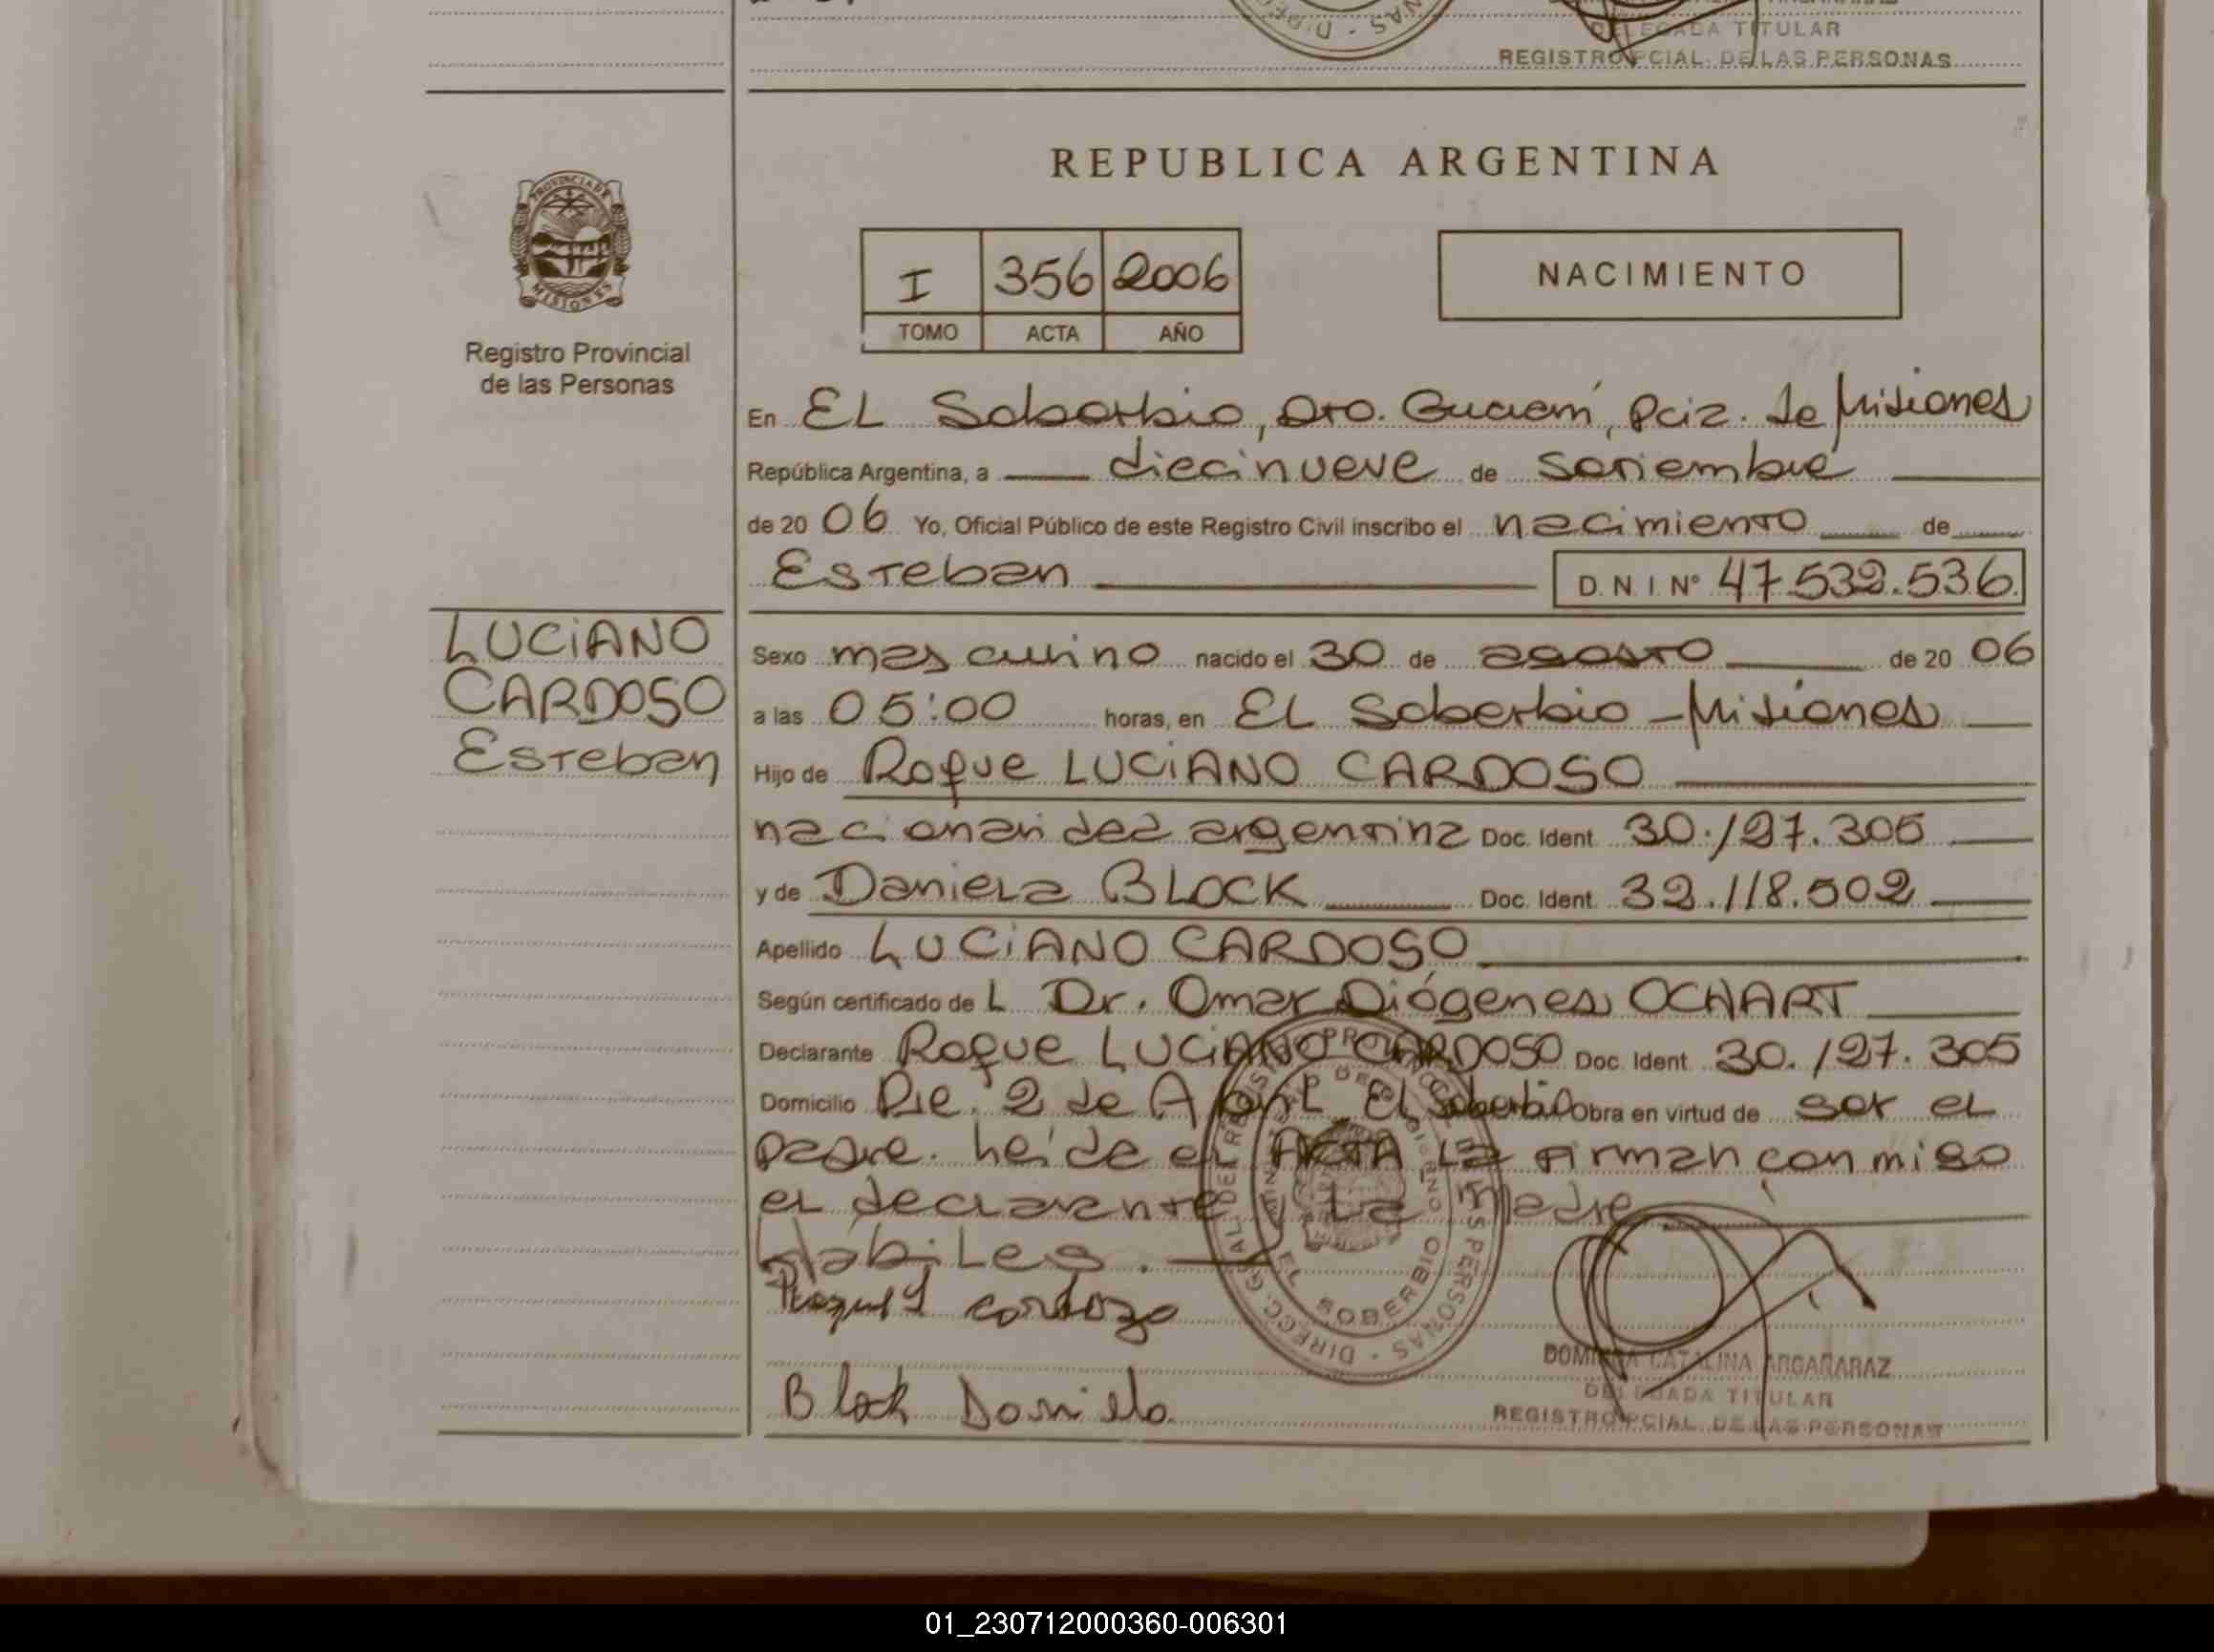 DELEGADA TITULAR
REGISTRO PCIAL. DE LAS PERSONAS
REPUBLICA ARGENTINA
PROVINCIA DE
MISIONES
Registro Provincial
de las Personas
I 356 2006
TOMO ACTA AÑO
NACIMIENTO
En EL Soberbio, Dto. Guaraní, Pcia. de Misiones
República Argentina, a diecinueve de Setiembre
de 20 06 Yo, Oficial Público de este Registro Civil inscribo el nacimiento de
Esteban D.N.I. Nº 47.532.536.
LUCiANO
CARDOSO
Esteban
Sexo masculino nacido el 30 de agosto de 20 06
a las 05:00 horas, en EL Soberbio - Misiones
Hijo de Roque LUCiANO CARDOSO
nacionalidad argentina Doc. Ident. 30.127.305
y de Daniela BLOCK Doc. Ident. 32.118.502
Apellido LUCiANO CARDOSO
Según certificado de L Dr. Omar Diógenes OCHART
Declarante Roque LUCiANO CARDOSO Doc. Ident. 30.127.305
Domicilio 2 de Abril El Soberbio Obra en virtud de ser el
padre. Leída el ACTA la firman conmigo
el declarante y la madre
Hábiles.
cardozo
Block Daniela
DIRECC. GRAL. DEL REGISTRO PROVINCIAL DE LAS PERSONAS
EL SOBERBIO
DOMINGA CATALINA ARGAÑARAZ
DELEGADA TITULAR
REGISTRO PCIAL. DE LAS PERSONAS
01_230712000360-006301